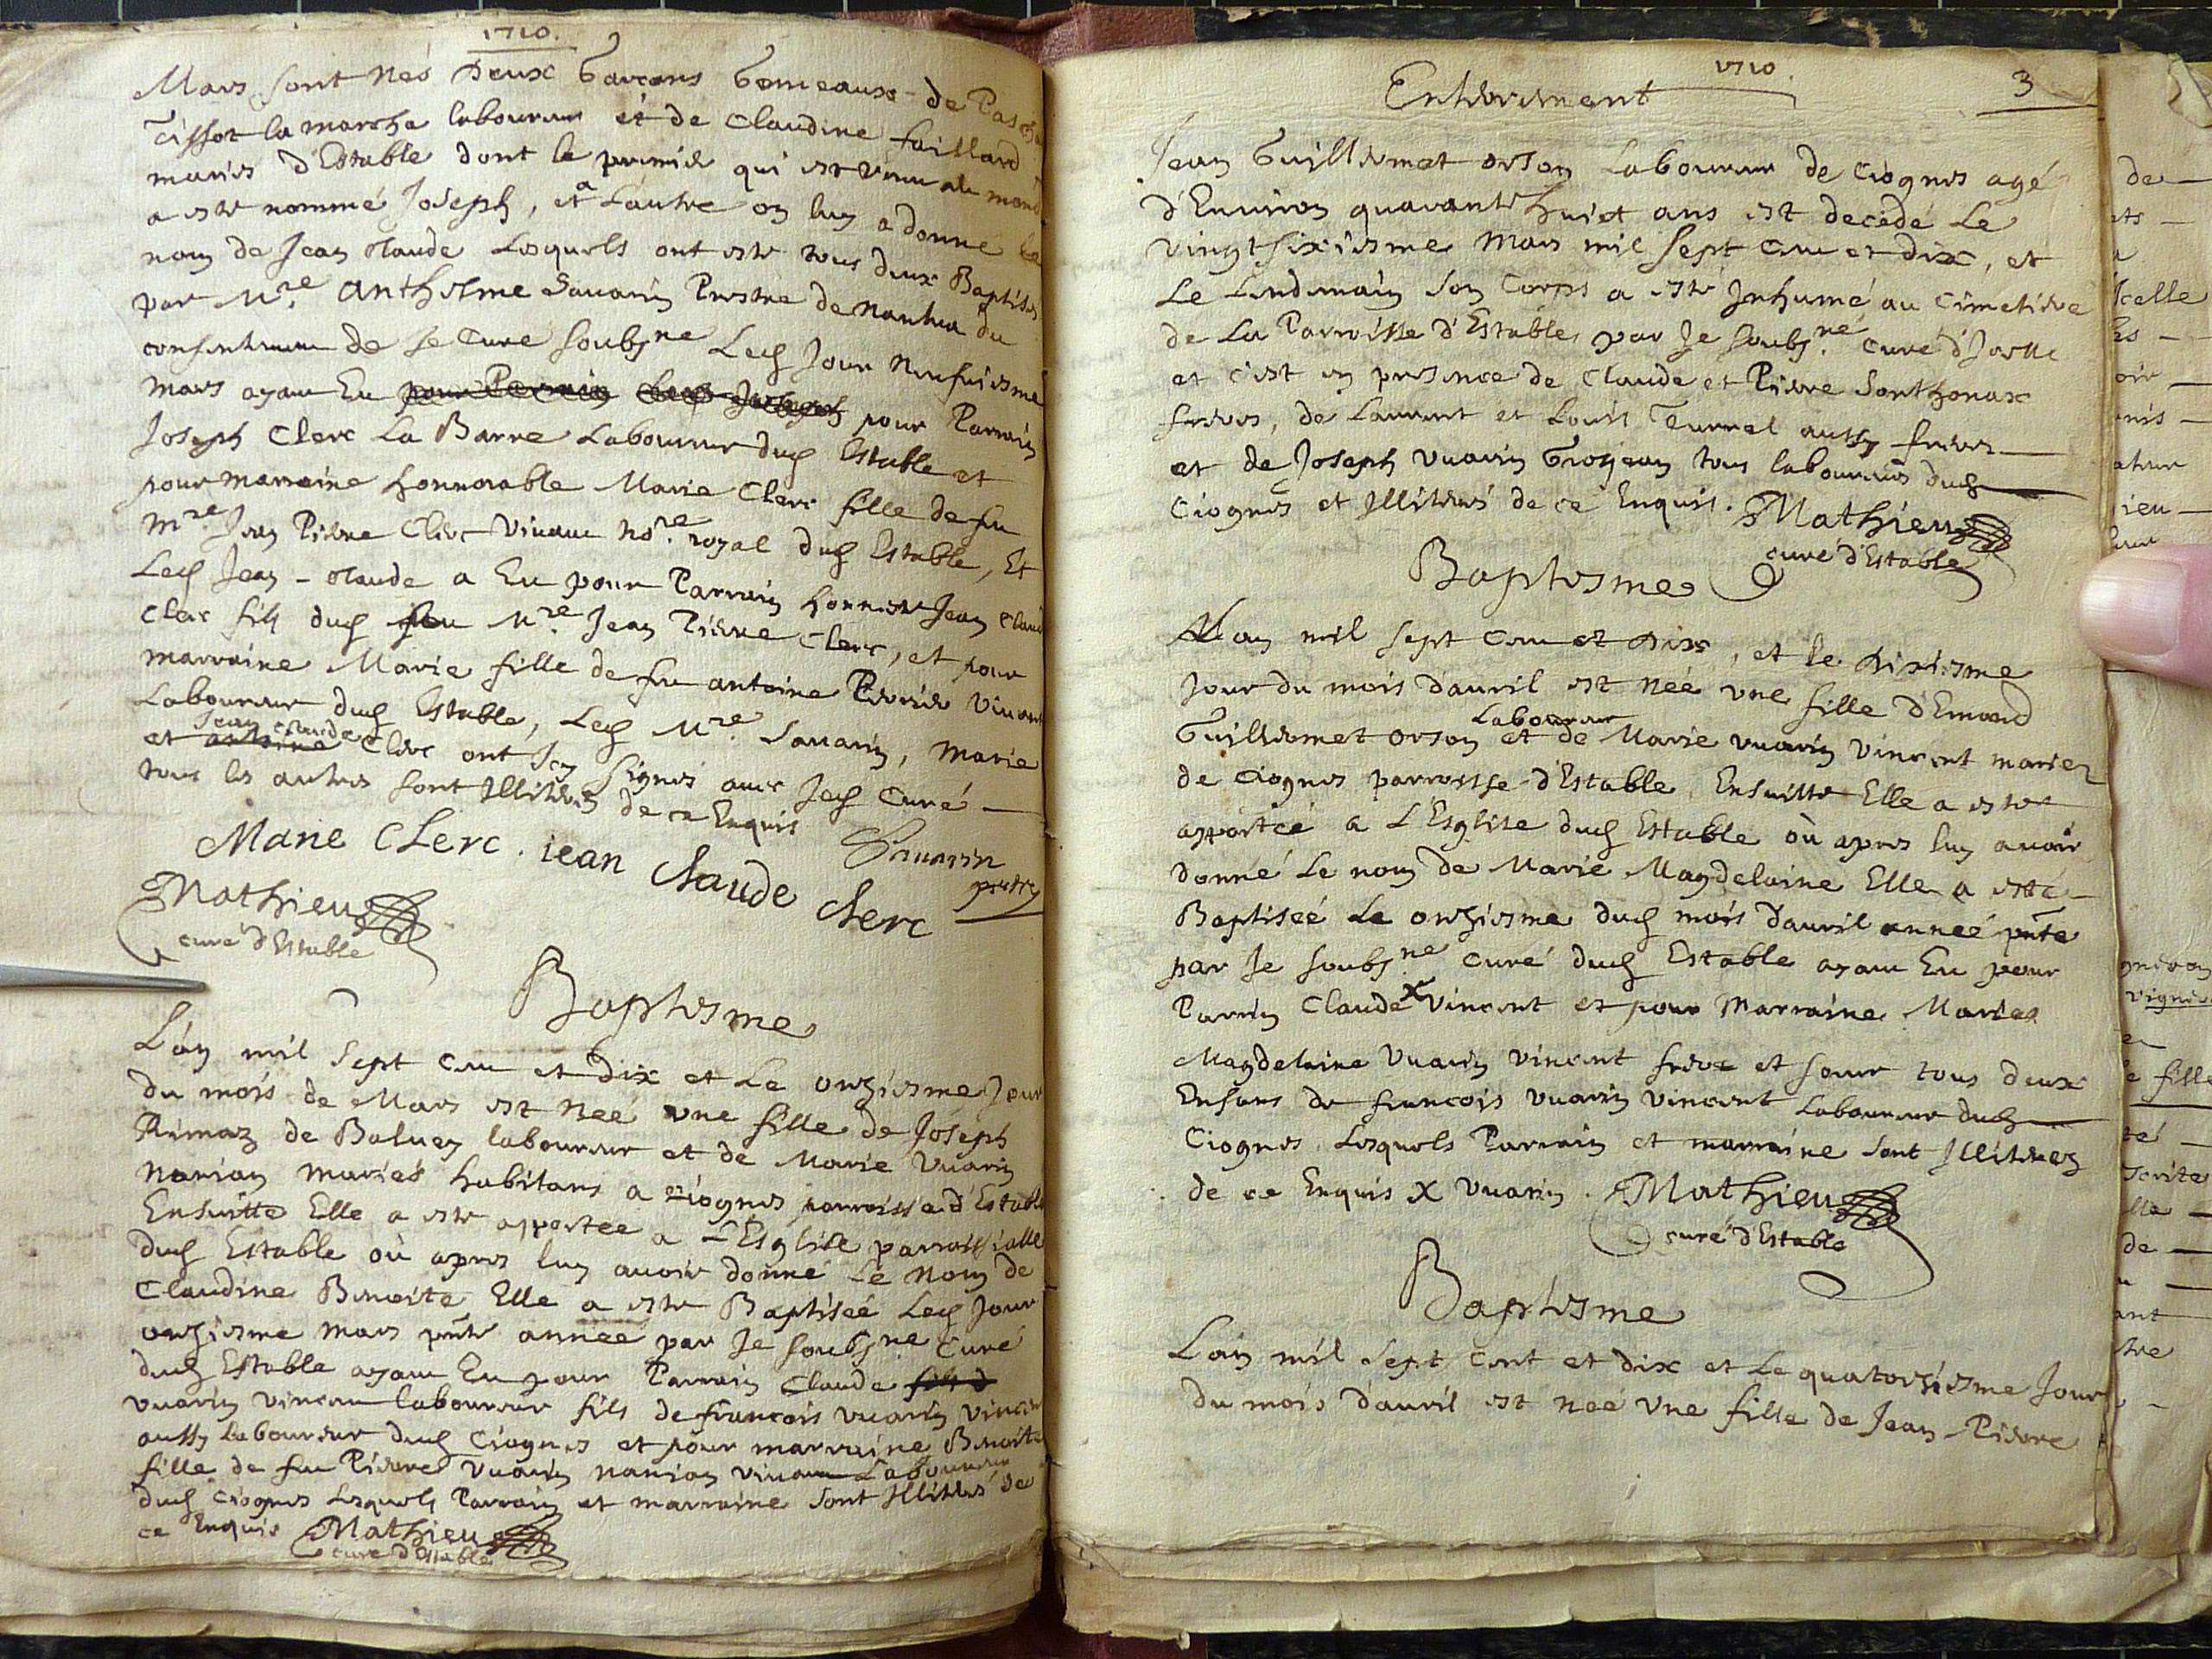 1710.
Mars sont nés deux Garcons Gemeaux de Pascha
Tissot la marche laboureur et de Claudine faillard
mariés d'Estable dont le premier qui est venu au mond
a este nommé Joseph, et a L'autre on luy a donné le
nom de Jean claude Lesquels ont este tous deux Baptisés
par Mre. anthesme Sauarin Prestre de nantua du
consentement de Je Curé soubsne Led Jour neufuiesme
mars ayant Eu pour Parrain pour Parrain
Joseph Clerc La Barre Laboureur dud Estable et
pour marraine honnorable Marie Clerc fille de feu
Mre Jean Pierre Clerc Viuant nore. royal dud Estable, Et
Led Jean-claude a Eu pour Parrain honneste Jean Claud
Clerc fils dud feu Mre. Jean Pierre Clerc, et pour
marraine Marie fille de feu antoine Perrier Viuant
Laboureur dud Estable, Led Mre. Sauarin, Marie
et antoine Jean claude Clerc ont Icy signés auec Jed Curé
tous les autres sont Illiterés de ce Enquis
Marie Clerc. iean Claude Clerc
Sauarin
prestre
Mathieu
curé d'Estable
Baptesme
L'an mil sept cent et dix et Le onziesme Jour
du mois de Mars est neé vne fille de Joseph
Rimaz de Baluey laboureur et de Marie Vuarin
nanian mariés habitans a Ciognes parroisse d'Estable
Ensuitte Elle a este apportée a L'Esglise parroissialle
dud Estable où apres luy auoir donné Le nom de
Claudine Benoite Elle a este Baptiseé Led Jour
onziesme mars pnte année par Je soubsne Curé
dud Estable ayant Eu pour Parrain Claude fils d
vuarin vincent laboureur fils de francois vuarin vincen
aussy Laboureur dud Ciognes et pour marraine Benoite
fille de feu Pierre Vuarin nanian viuant Laboureur
dud Ciognes Lesquels Parrain et marraine sont Illiterés de
ce Enquis Mathieu
curé d'Estable
1710.
3
Enterrement
Jean Guillermet orson Laboureur de Ciognes agé
d'Enuiron quarante huict ans est decedé Le
vingt sixiesme Mars mil sept cent et dix, et
Le Lendemain son Corps a este Inhumé au Cimetiere
de La Parroisse d'Estable par Je soubsne. Curé d'Icelle
et c'est en presence de Claude et Pierre Sonthonax
freres, de Laurent et Louis Turrel aussy freres
et de Joseph vuarin Grosjean tous laboureurs dud
Ciognes et Illiterés de ce Enquis. Mathieu
curé d'Estable
Baptesme
L'an mil sept cent et dix, et le dixiesme
Jour du mois d'auril est neé vne fille d'Emond
Laboureur
Guillermet orson et de Marie vuarin vincent mariez
de Ciognes parroisse d'Estable Ensuitte Elle a este
apportée a L'Esglise dud Estable où apres luy auoir
donné Le nom de Marie Magdelaine Elle a esté
Baptiseé Le onziesme dud mois d'auril anneé pnte
par Je soubsne Curé dud Estable ayant Eu pour
Parrin Claude x Vincent et pour Marraine Marie
Magdelaine Vuarin vincent frere et soeur tous deux
Enfans de francois vuarin vincent Laboureur dud
Ciognes Lesquels Parrain et marraine sont Illiterez
de ce Enquis x vuarin. Mathieu
curé d'Estable
Baptesme
L'an mil sept cent et dix et Le quatorziesme Jour
du mois d'auril est neé vne fille de Jean-Pierre